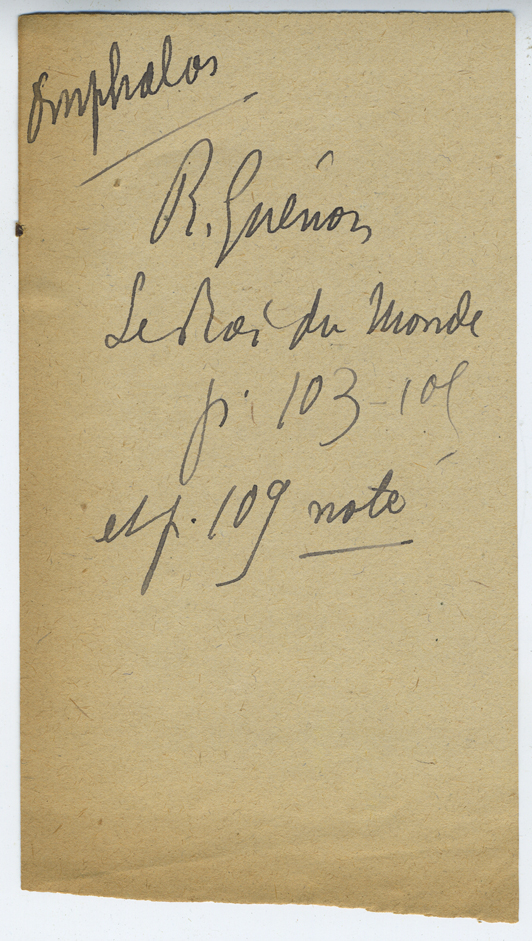 Omphalos
R. Guénon
Le Roi du Monde
p. 103-105
et p. 109 note